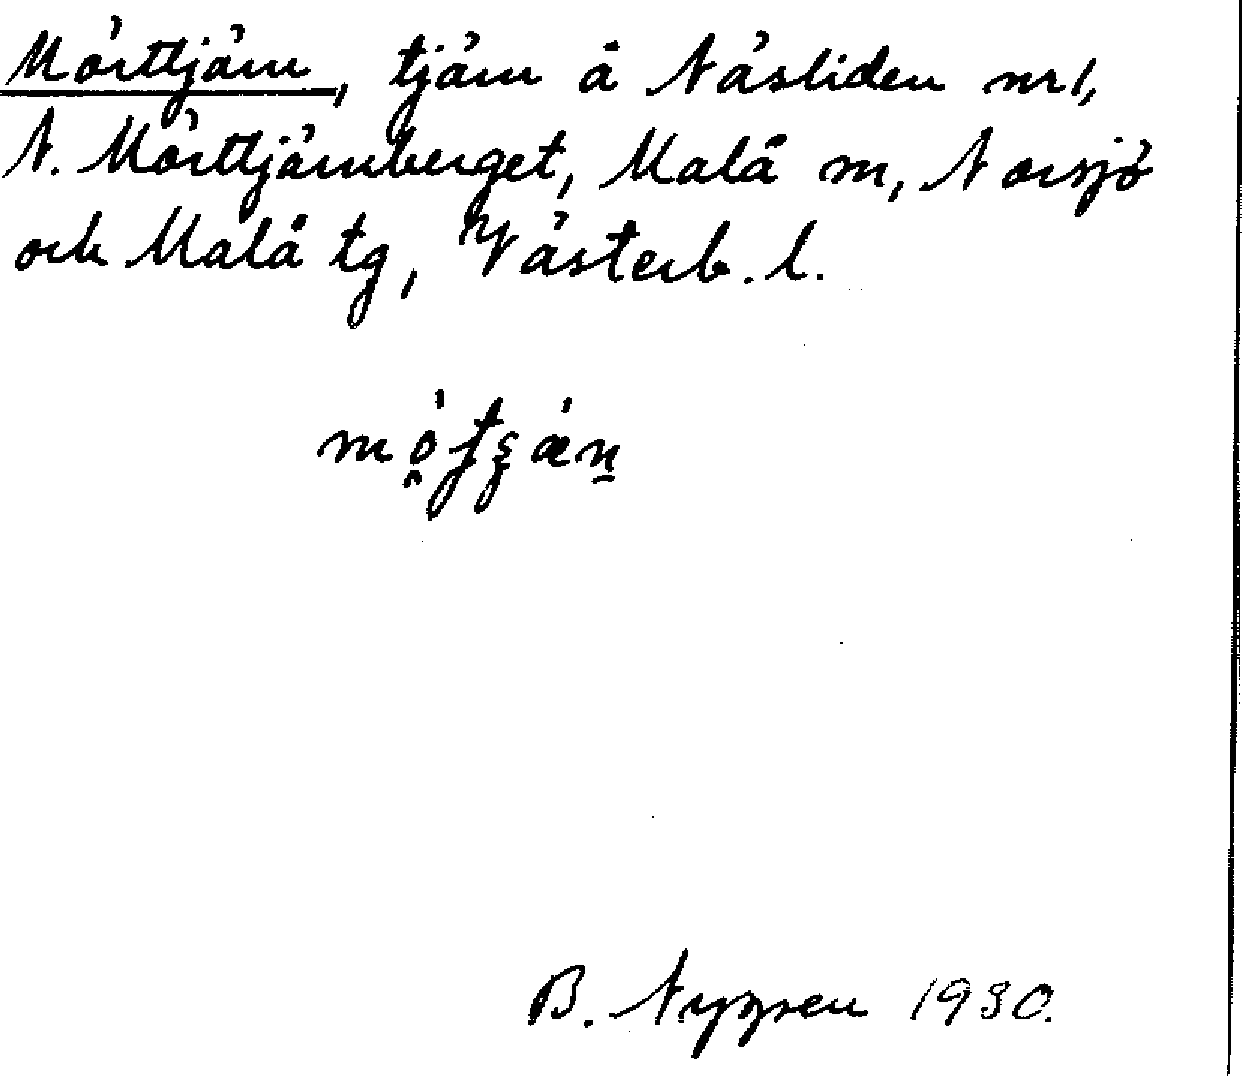 Mörttjärn, tjärn å Näsliden nr 1,
N. Mörttjärnberget, Malå sn, Norsjö
och Malå tg, Västerb. l.
B. Nygren 1930.